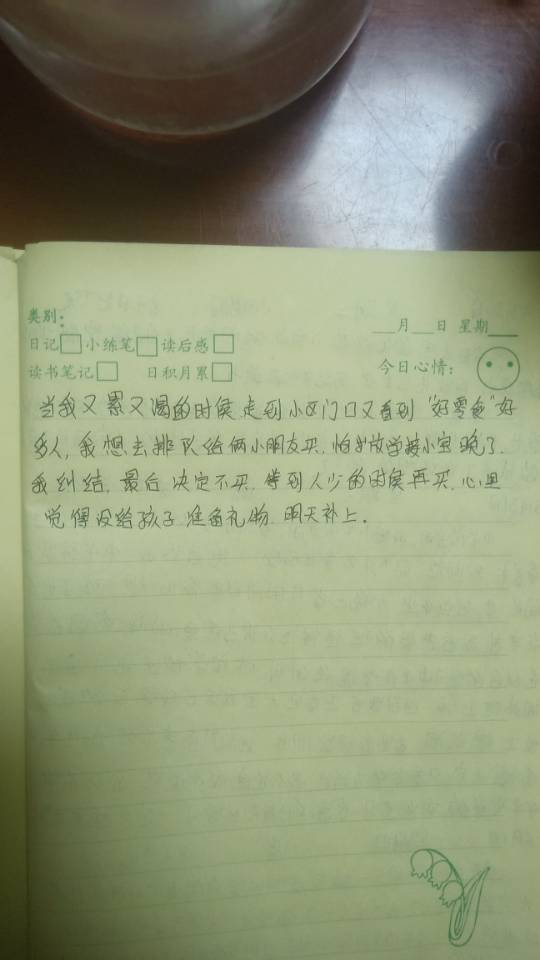 类别：
___月___日 星期___
日记□ 小练笔□ 读后感□
读书笔记□ 日积月累□ 今日心情：
当我又累又渴的时候走到小区门口又看到"好零食"好
多人，我想去排队给俩小朋友买，怕我放学接小宝晚了.
我纠结. 最后决定不买. 等到人少的时候再买. 心里
觉得没给孩子准备礼物. 明天补上.